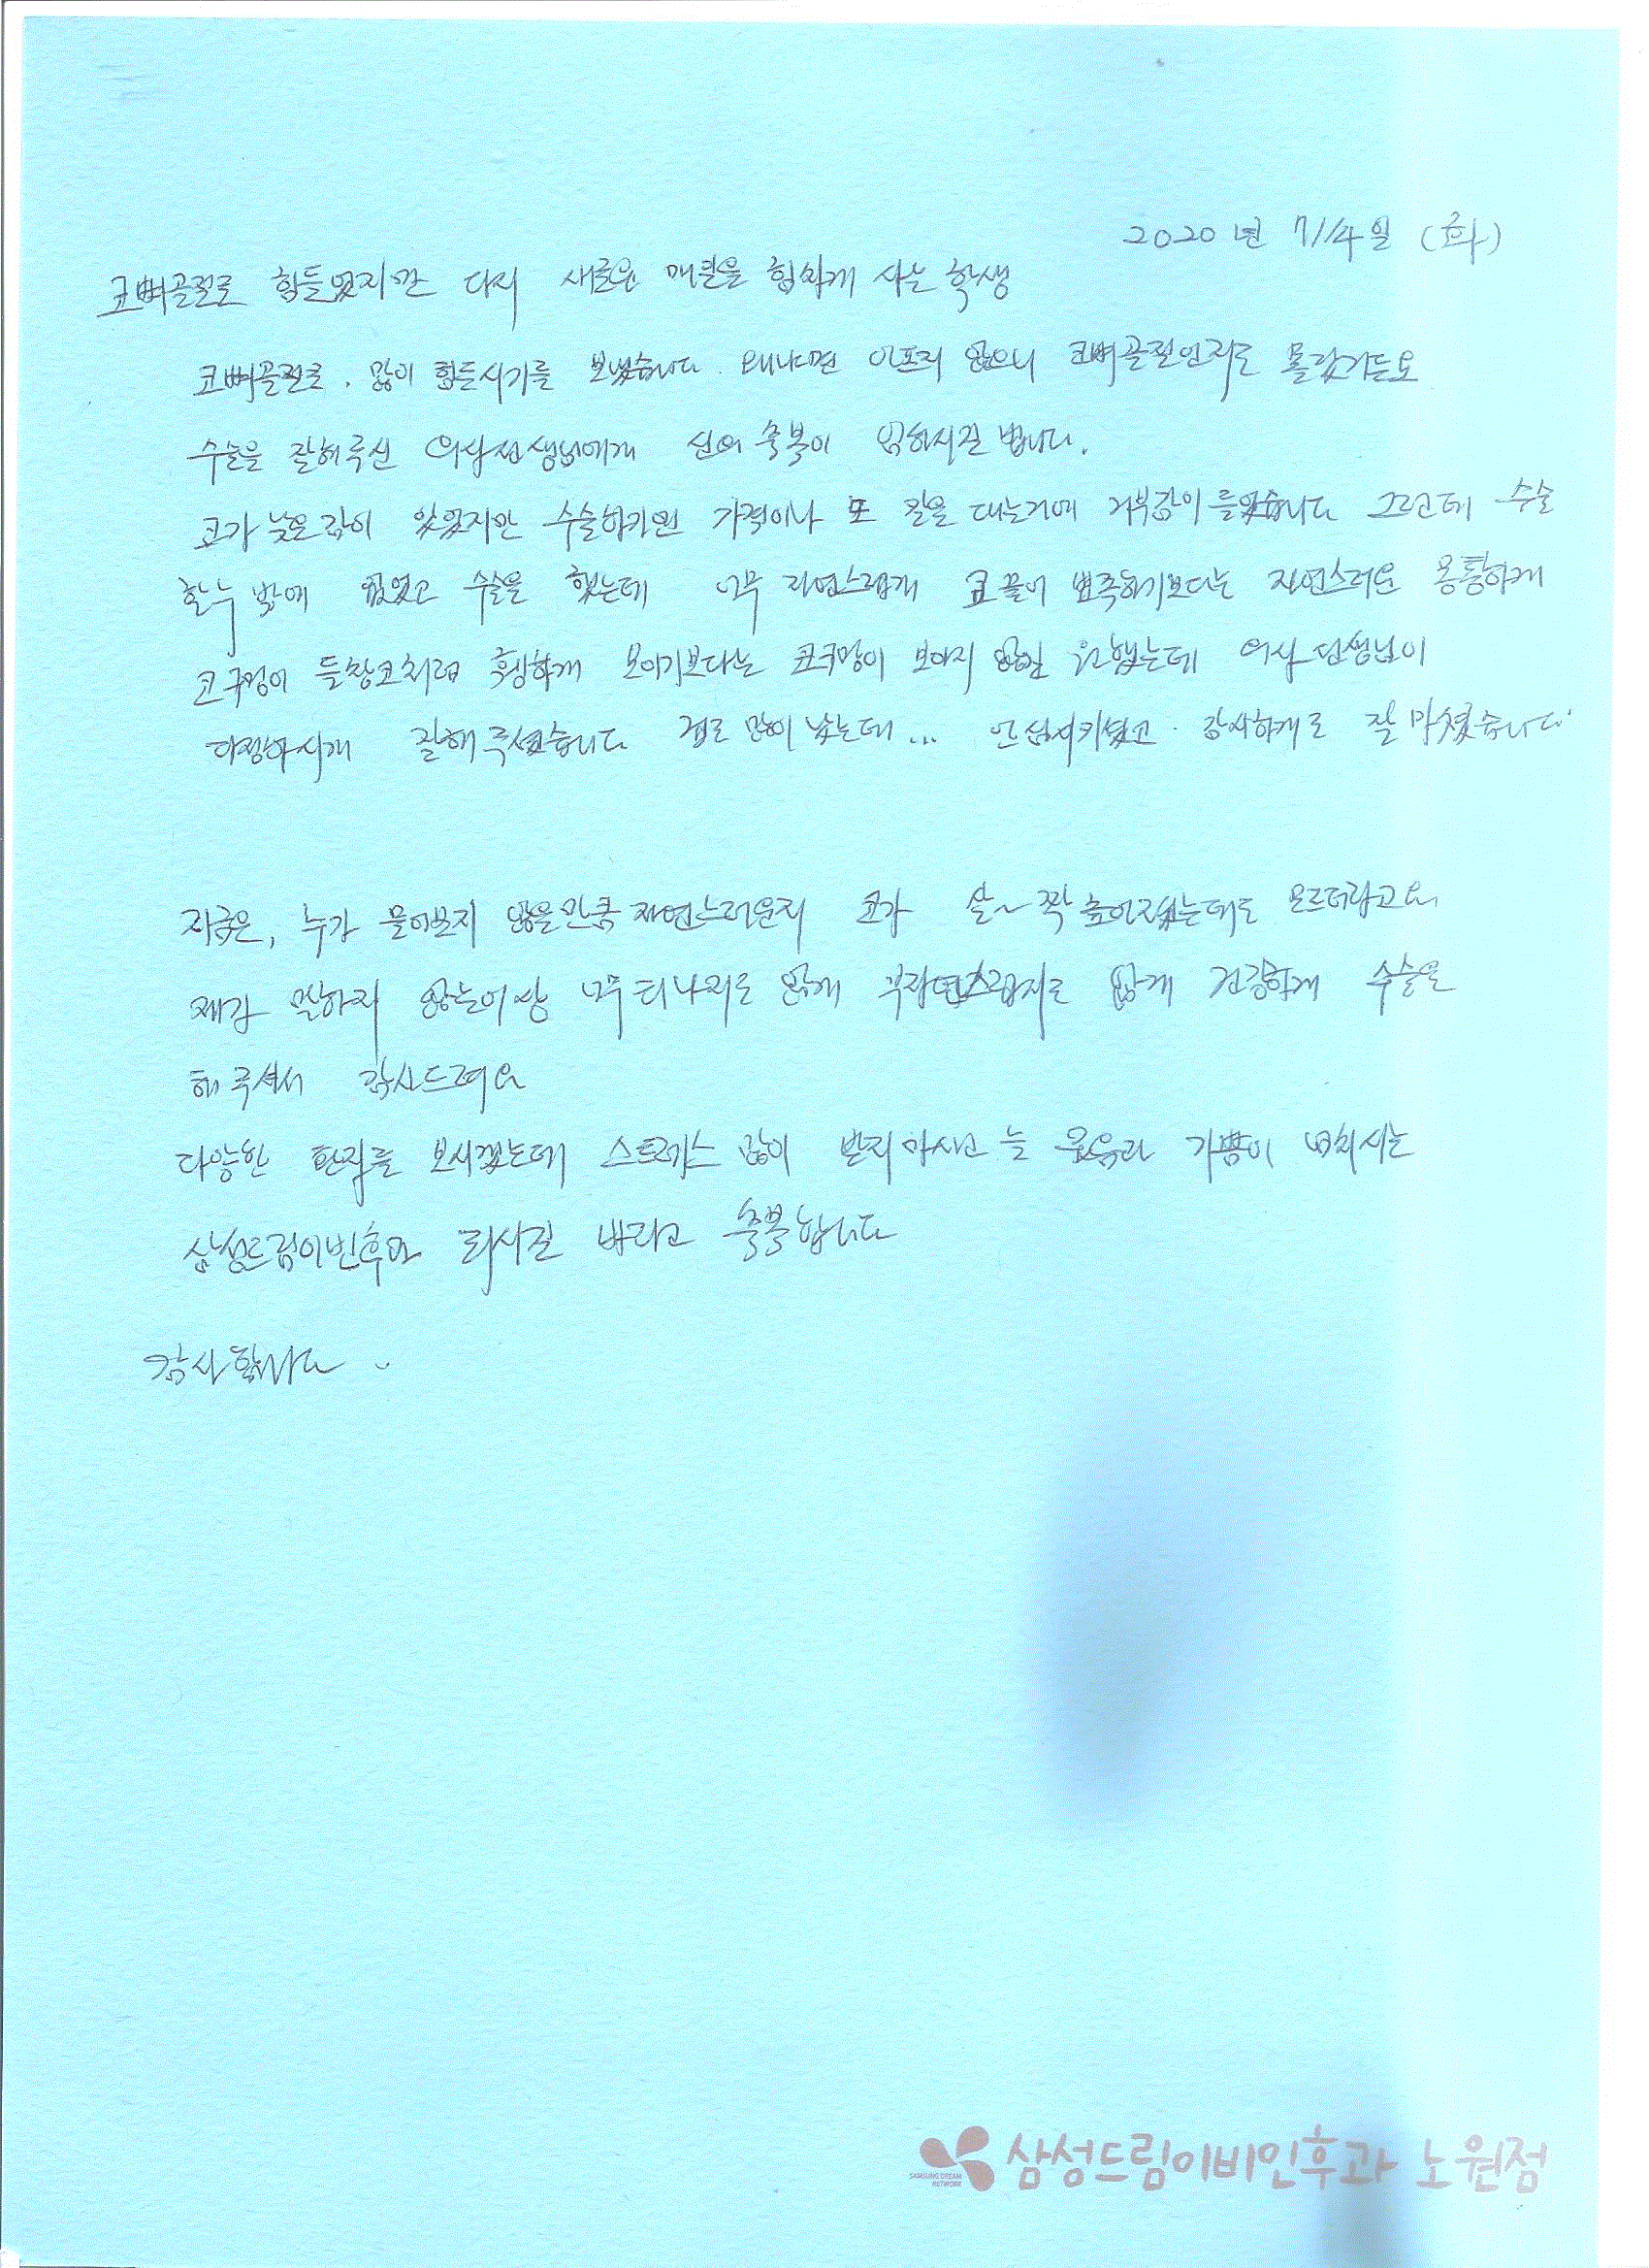 2020년 7/14일 (화)
코뼈골절로 힘들었지만 다시 새로운 매일을 힘차게 사는 학생
코뼈골절로. 많이 힘든시기를 보냈습니다. 왜냐면 아프지 않으니 코뼈골절인지도 몰랐거든요
수술을 잘해주신 의사선생님에게 신의 축복이 임하시길 빕니다.
코가 낮은감이 있었지만 수술하기엔 가격이나 또 칼을 대는거에 거부감이 들었습니다 그런데 수술
할수 밖에 없었고 수술을 했는데 너무 자연스럽게 코끝이 뾰족하기보다는 자연스러운 몽톡하게
코구멍이 들창코처럼 흉하게 보이기보다는 코구멍이 보이지 않길 원했는데 의사선생님이
다정하시게 잘해주셨습니다 겁도 많이 났는데... 안심시키셨고. 감사하게도 잘 마쳤습니다.
지금은, 누가 물어보지 않을만큼 자연스러운지 코가 살~짝 높아졌는데도 모르더라고요.
제가 말하지 않는이상 너무 티나지도 않게 부자연스럽지도 않게 건강하게 수술을
해 주셔서 감사드려요
다양한 환자를 보시겠는데 스트레스 많이 받지마시고 늘 웃음과 기쁨이 넘치시는
삼성드림이비인후과 되시길 바라고 축복합니다
감사합니다
SAMSUNG DREAM NETWORK
삼성드림이비인후과 노원점